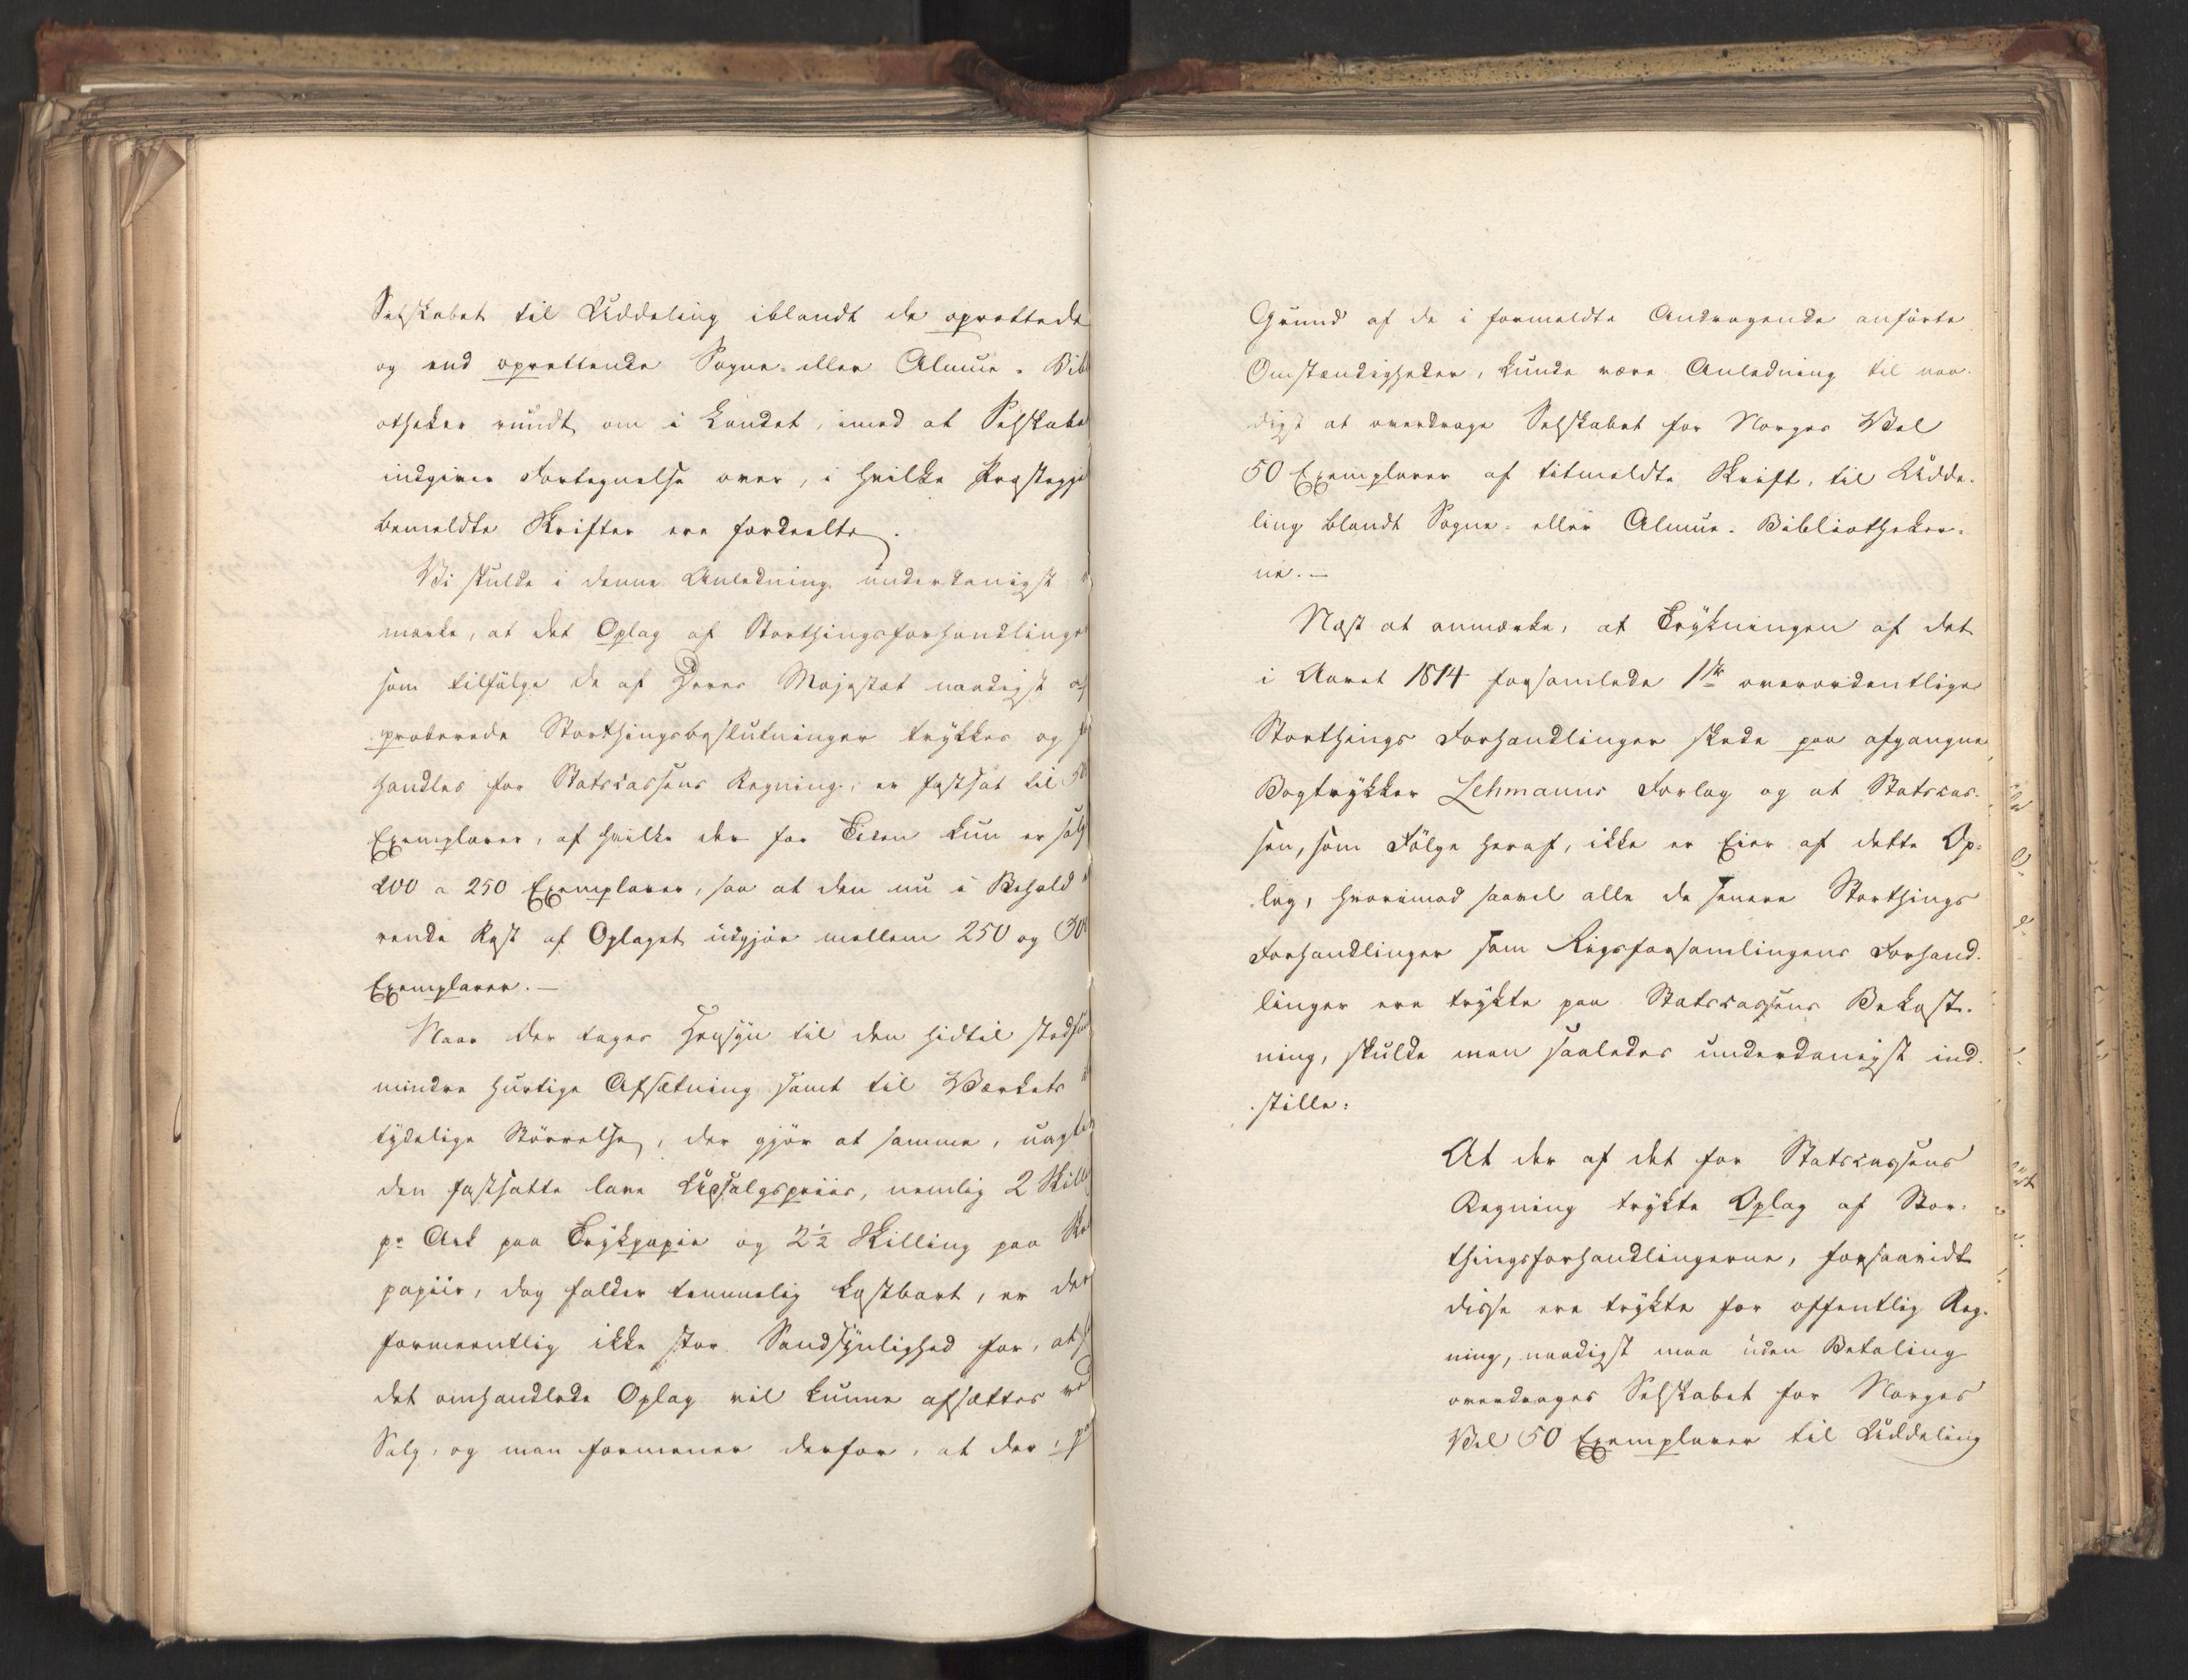 Selskabet til Uddeling iblandt de oprettede
og end oprettende Sogne- eller Almue-Bib
otheker rundt om i Landet, imod at Selskabe
indgiver Fortegnelse over, i hvilke Præstegje
bemeldte Skrifter ere fordeelte.
Vi skulde i denne Anledning underdanigst
mærke, at det Oplag af Storthingsforhandlinge
som tilfölge de af Deres Majestæt naadigst ap
proberede Storthingsbeslutninger trykkes og fo
handles for Statscassens Regning, er fastsat til 50
Exemplarer, af hvilke der for Tiden kun er solg
200 a 250 Exemplarer, saa at den nu i Behold
rende Rest af Oplaget udgjör mellem 250 og 30
Exemplarer. —
Naar der tages Hensyn til den hidtil stedfun
mindre hurtige Afsætning samt til Værkets
tydelige Störrelse, der gjör at samme, uagte
den fastsatte lave Udsalgspriis, nemlig 2 Skill
pr Ark paa Trykpapir og 2½ Skilling paa Skr
papiir, dog falder temmelig kostbart, er der
formeentlig ikke stor Sandsynlighed for, at
det omhandlede Oplag vil kunne afsættes ved
Salg, og man formener derfor, at der, p
Grund af de i formeldte Andragende anförte
Omstændigheder, kunde være Anledning til naa-
digst at overdrage Selskabet for Norges Vel
50 Exemplarer af titmeldte Skrift, til Udde-
ling blandt Sogne- eller Almue-Bibliotheker-
ne. —
Næst at anmærke, at Trykningen af det
i Aaret 1814 forsamlede 1ste overordentlige
Storthings Forhandlinger skede paa afgangne
Bogtrykker Lehmanns Forlag og at Statscas-
sen, som Fölge heraf, ikke er Eier af dette Op-
lag, hvorimod saavel alle de senere Storthings
Forhandlinger som Rigsforsamlingens Forhand-
linger ere trykte paa Statscassens Bekost-
ning, skulde man saaledes underdanigst ind-
stille:
At der af det for Statscassens
Regning trykte Oplag af Stor-
thingsforhandlingerne, forsaavidt
disse ere trykte for offentlig Reg-
ning, naadigst maa uden Betaling
overdrages Selskabet for Norges
Vel 50 Exemplarer til Uddeling